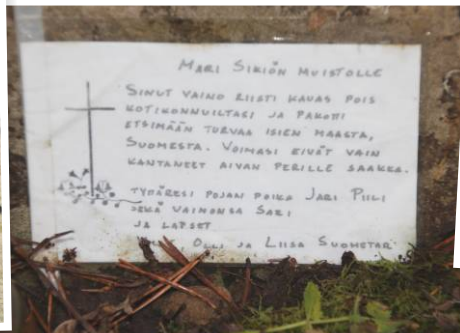 MARI SIKIÖN MUISTOLLE
SINUT VAINO RIISTI KAUAS POIS
KOTIKONNUILTASI JA PAKOTTI
ETSIMÄÄN TURVAA ISIEN MAASTA,
SUOMESTA. VOIMASI EIVÄT VAIN
KANTANEET AIVAN PERILLE SAAKKA.
TYTÄRESI POJAN POIKA JARI PIILI
SEKÄ VAIMONSA SARI
JA LAPSET
OLLI JA LIISA SUOMETAR